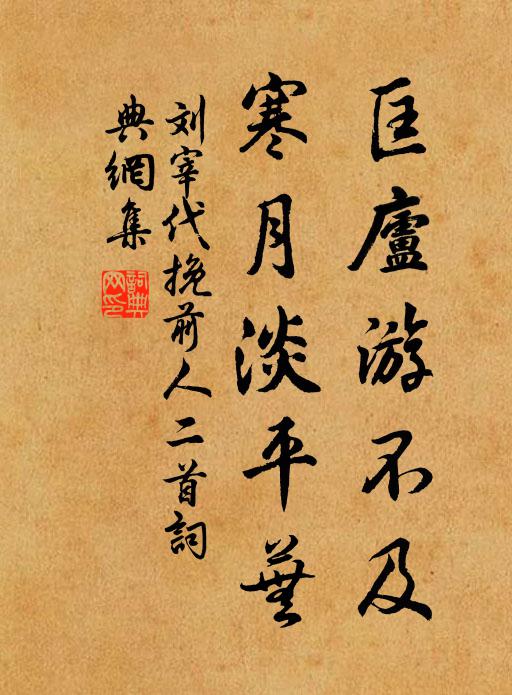 匡廬游不及
寒月淡平蕪
刘宰代挽前人二首詞
典網集
詞典
网印